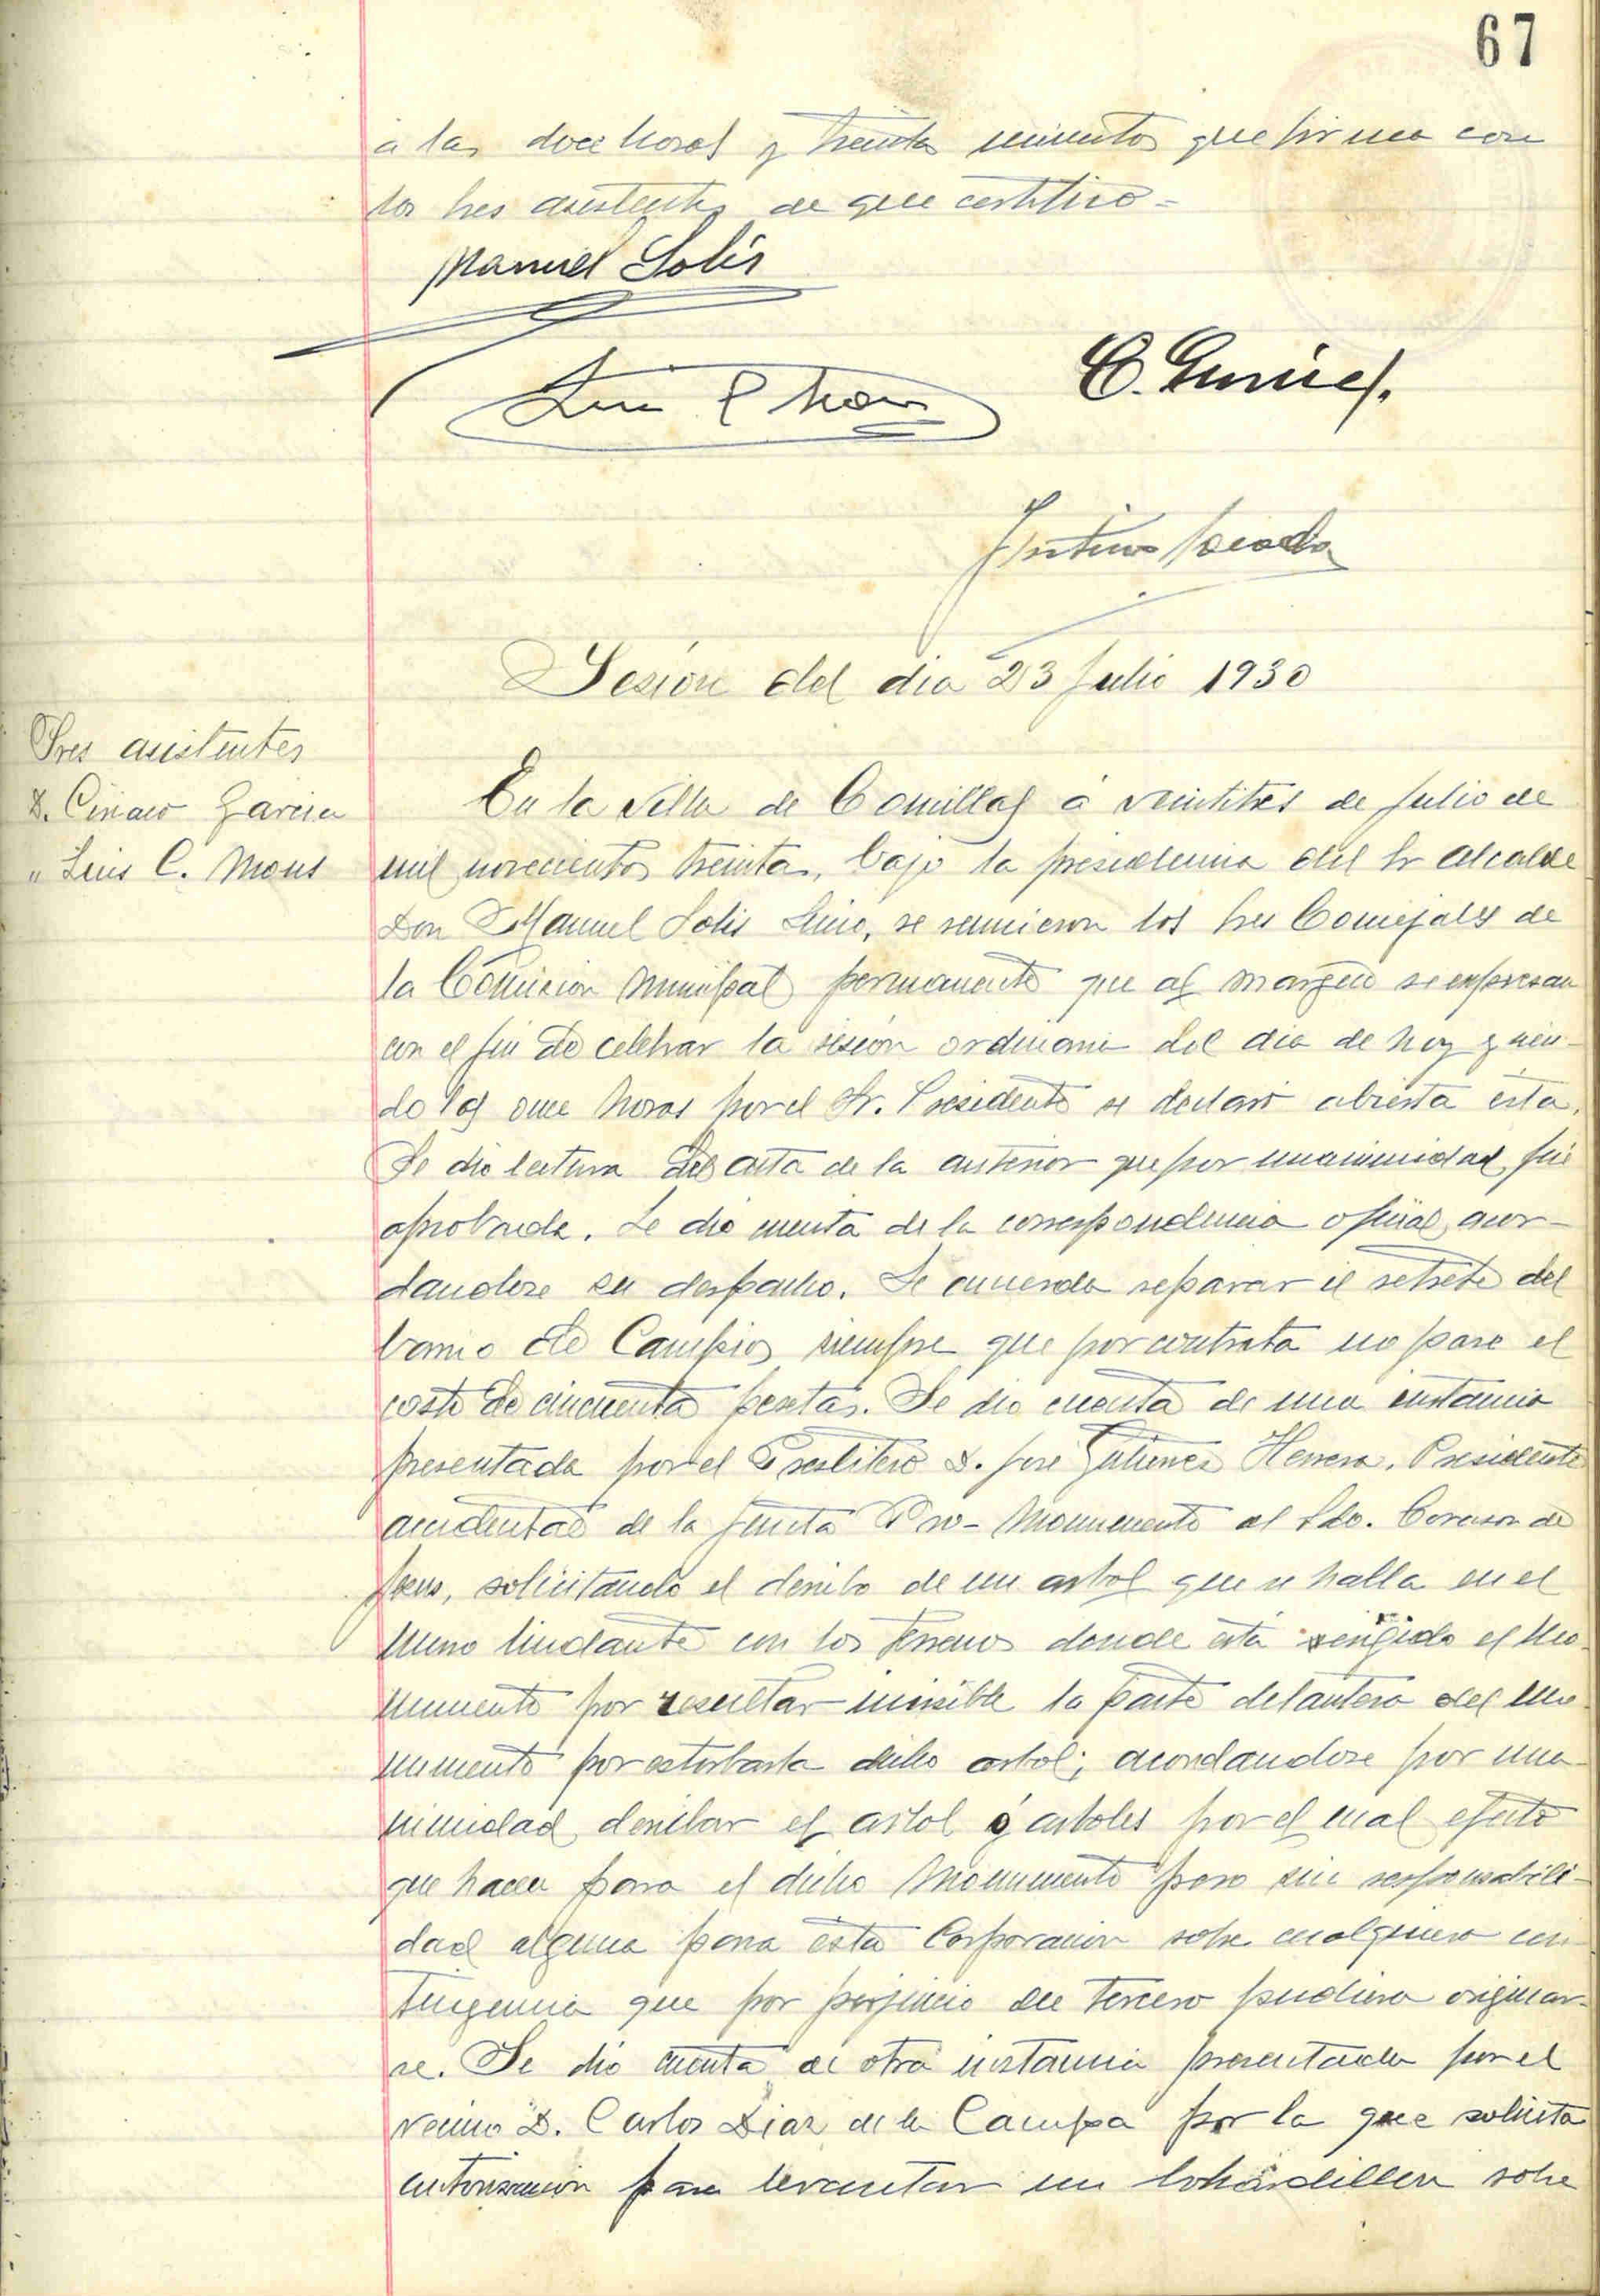 67
a las doce horas y treinta minutos que firma con
los Sres asistentes de que certifico =
Manuel Solís
Luis C Mons
C. García
Sesión del dia 23 Julio 1930
Sres asistentes
D. Ciriaco Garcia
" Luis C. Mons
En la Villa de Comillas á veintitres de Julio de
mil novecientos treinta, bajo la presidencia del Sr Alcalde
Don Manuel Solis, se reunieron los Sres Concejales de
la Comision Municipal permanente que al margen se expresan
con el fin de celebrar la sesión ordinaria del dia de hoy y sien-
do las once horas por el Sr. Presidente se declaró abierta esta.
Se dio lectura del acta de la anterior que por unanimidad fué
aprobada. Se dio cuenta de la correspondencia oficial acor-
dandose su despacho. Se acuerda reparar el retrete del
barrio de Campios siempre que por contrata no pase el
coste de cincuenta pesetas. Se dio cuenta de una instancia
presentada por el Presbitero D. José Gutierrez Herrera, Presidente
accidental de la Junta Pro-Monumento al Sdo. Corazon de
Jesus, solicitando el derribo de un arbol que se halla en el
muro lindante con los terrenos donde está erigido el Mo-
numento por resultar invisible la parte delantera del Mo-
numento por estorbarla dicho arbol; acordandose por una-
nimidad derribar el arbol ó arboles por el mal efecto
que hacen para el dicho Monumento pero sin responsabili-
dad alguna para esta Corporacion sobre cualquiera con-
tingencia que por perjuicio de tercero pudiera originar-
se. Se dio cuenta de otra instancia presentada por el
vecino D. Carlos Diaz de la Campa por la que solicita
autorizacion para levantar un bohardillon sobre